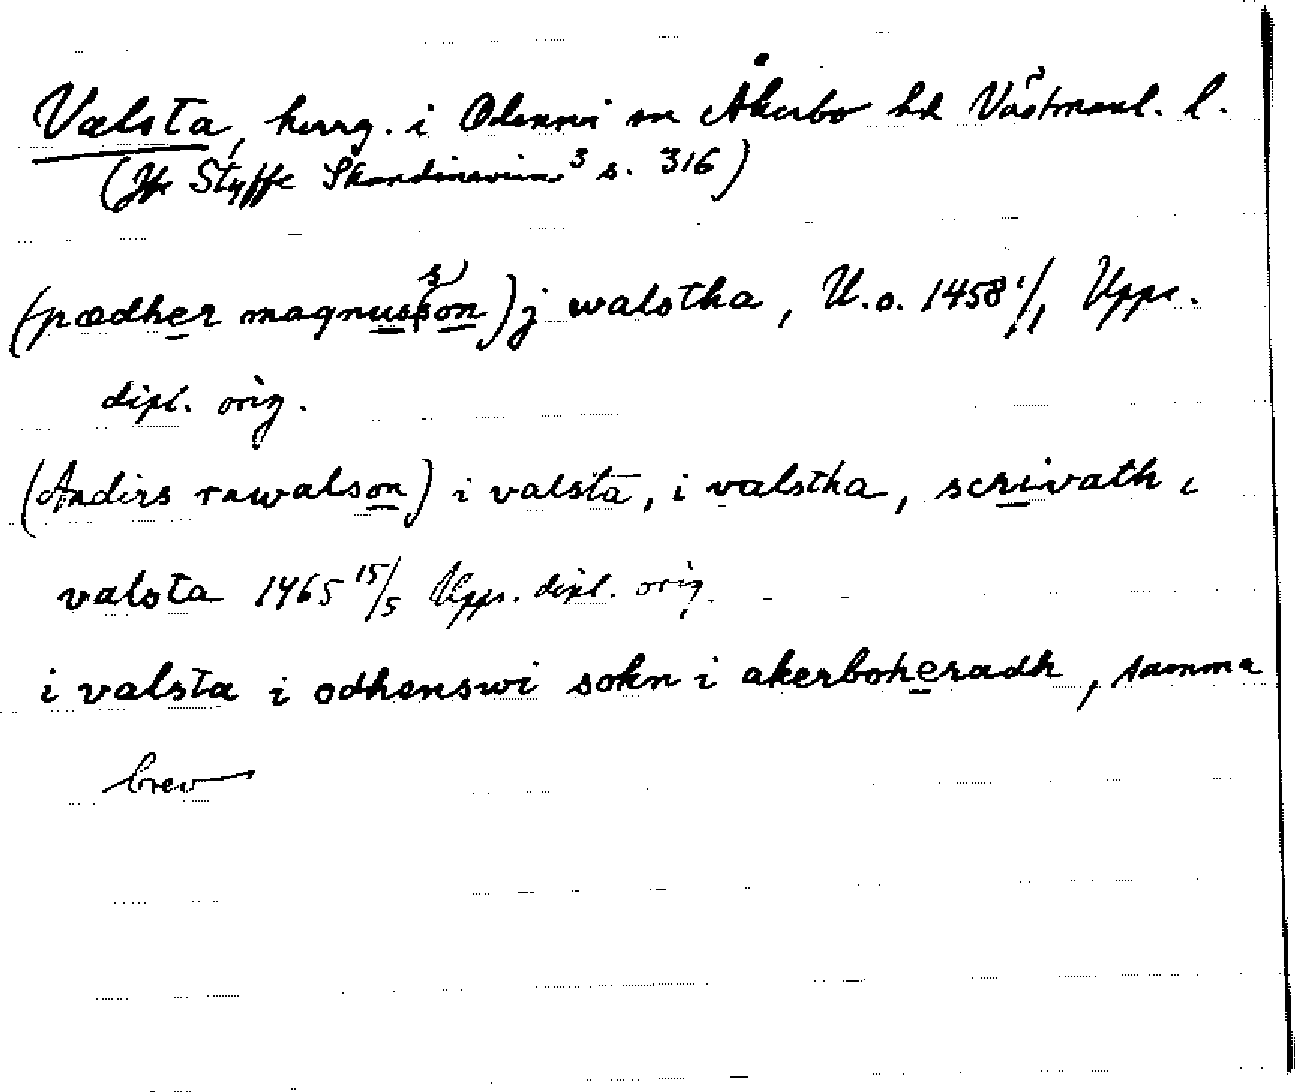 Valsta, herrg. i Odensvi sn Åkerbo hd Västmanl. l.
(Jfr Styffe Skandinavien³ s. 316)
(pædher magnusson) j walstka, U.o. 1458 1/1 Upps.
dipl. orig.
(Anders rawalson) i valsta, i valstha, scrivath i
valsta 1465 15/5 Upps. dipl. orig.
i valsta i odhenswi sokn i akerboheradh, samma
brev